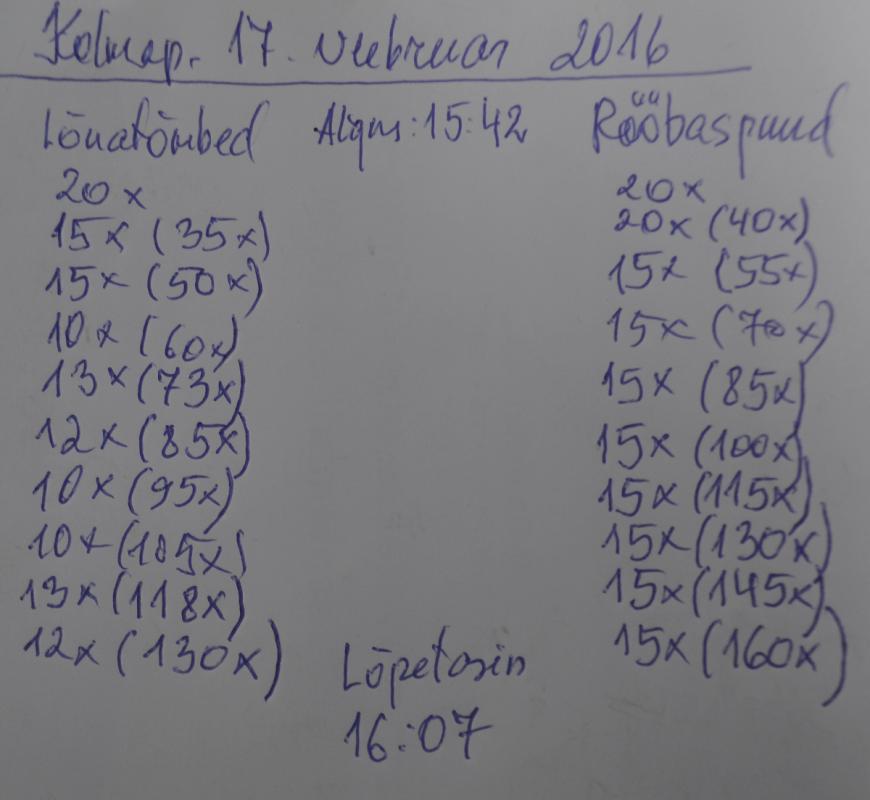 Kolmap. 17. veebruar 2016
Lõuatõmbed Algus: 15:42 Rööbaspuud
20x 20x
15x (35x) 20x (40x)
15x (50x) 15x (55x)
10x (60x) 15x (70x)
13x (73x) 15x (85x)
12x (85x) 15x (100x)
10x (95x) 15x (115x)
10x (105x) 15x (130x)
13x (118x) 15x (145x)
12x (130x) 15x (160x)
Lõpetasin
16:07